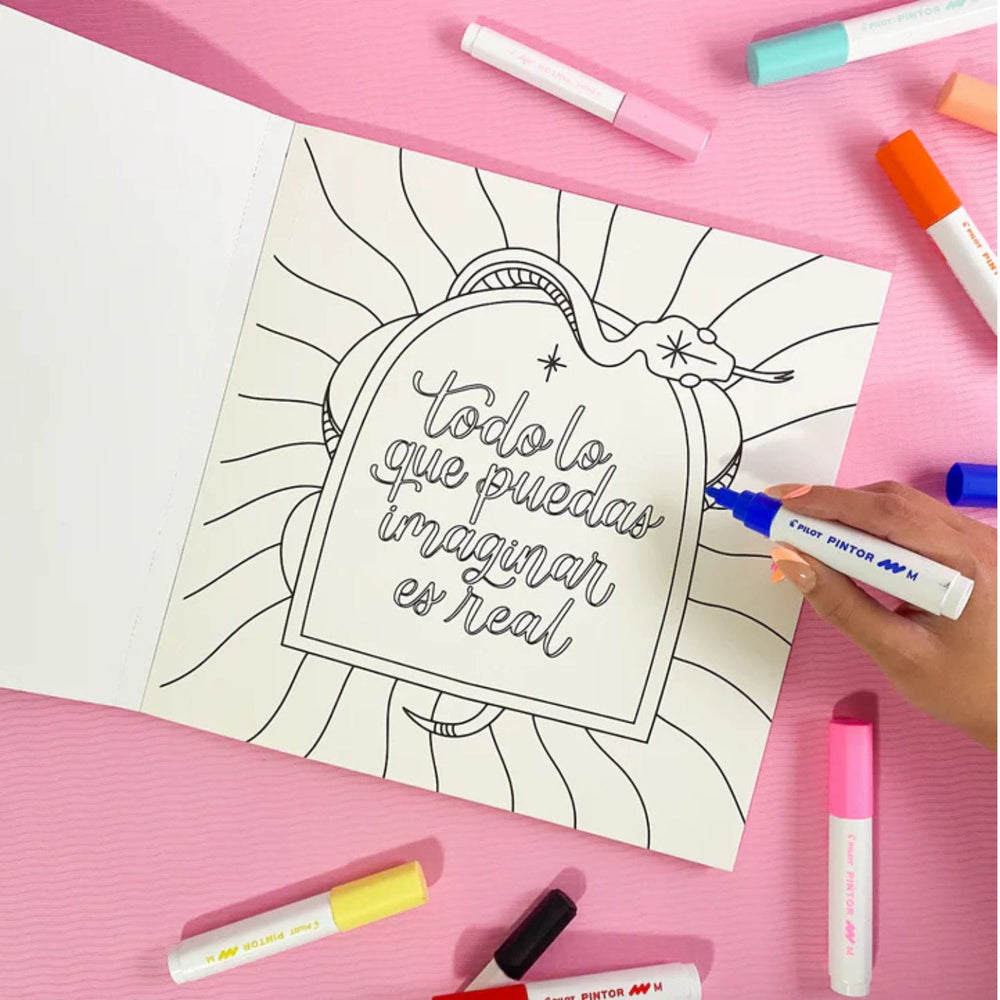 PILOT PINTOR
todo lo
que puedas
imaginar
es real
PILOT PINTOR M
PILOT PINTOR M
PILOT PINTOR M
PILOT PINTOR M
PILOT